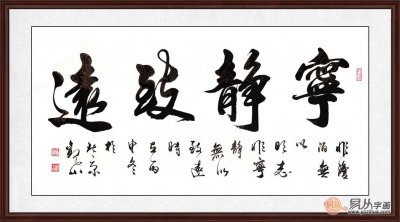 寧靜致遠
非澹
泊無
以
明志
非寧
靜
無以
致遠
時
在丙
申冬
於
北京
易从字画